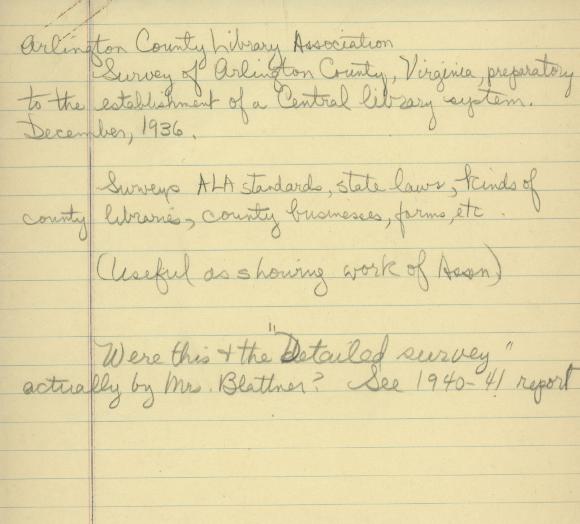 Arlington County Library Association
Survey of Arlington County, Virginia, preparatory
to the establishment of a Central library system.
December, 1936.
Surveys ALA standards, state laws, kinds of
county libraries, county businesses, farms, etc.
(Useful as showing work of Assn)
Were this & the "Detailed survey"
actually by Mrs. Blattner? See 1940-41 report